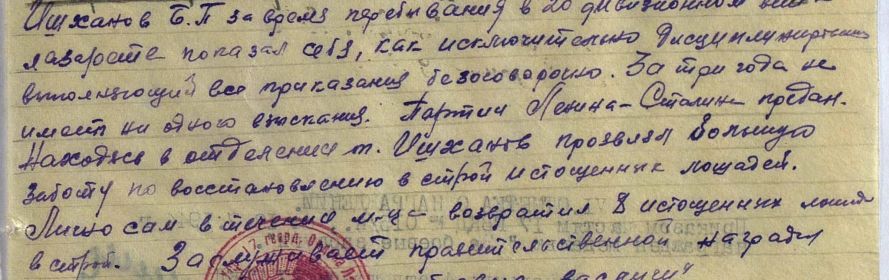 Ишханов Б.П за время пребывания в 20 дивизионном вет-
лазарете показал себя, как исключительно дисциплинирован
выполняющий все приказания безоговорочно. За три года не
имеет ни одного взыскания. Партии Ленина-Сталина предан.
Находясь в отделении т. Ишханов проявлял большую
заботу по восстановлению в строй истощенных лошадей.
Лично сам в течении м-ца - возвратил 8 истощенных лошад
в строй. Заслуживает правительственной награды